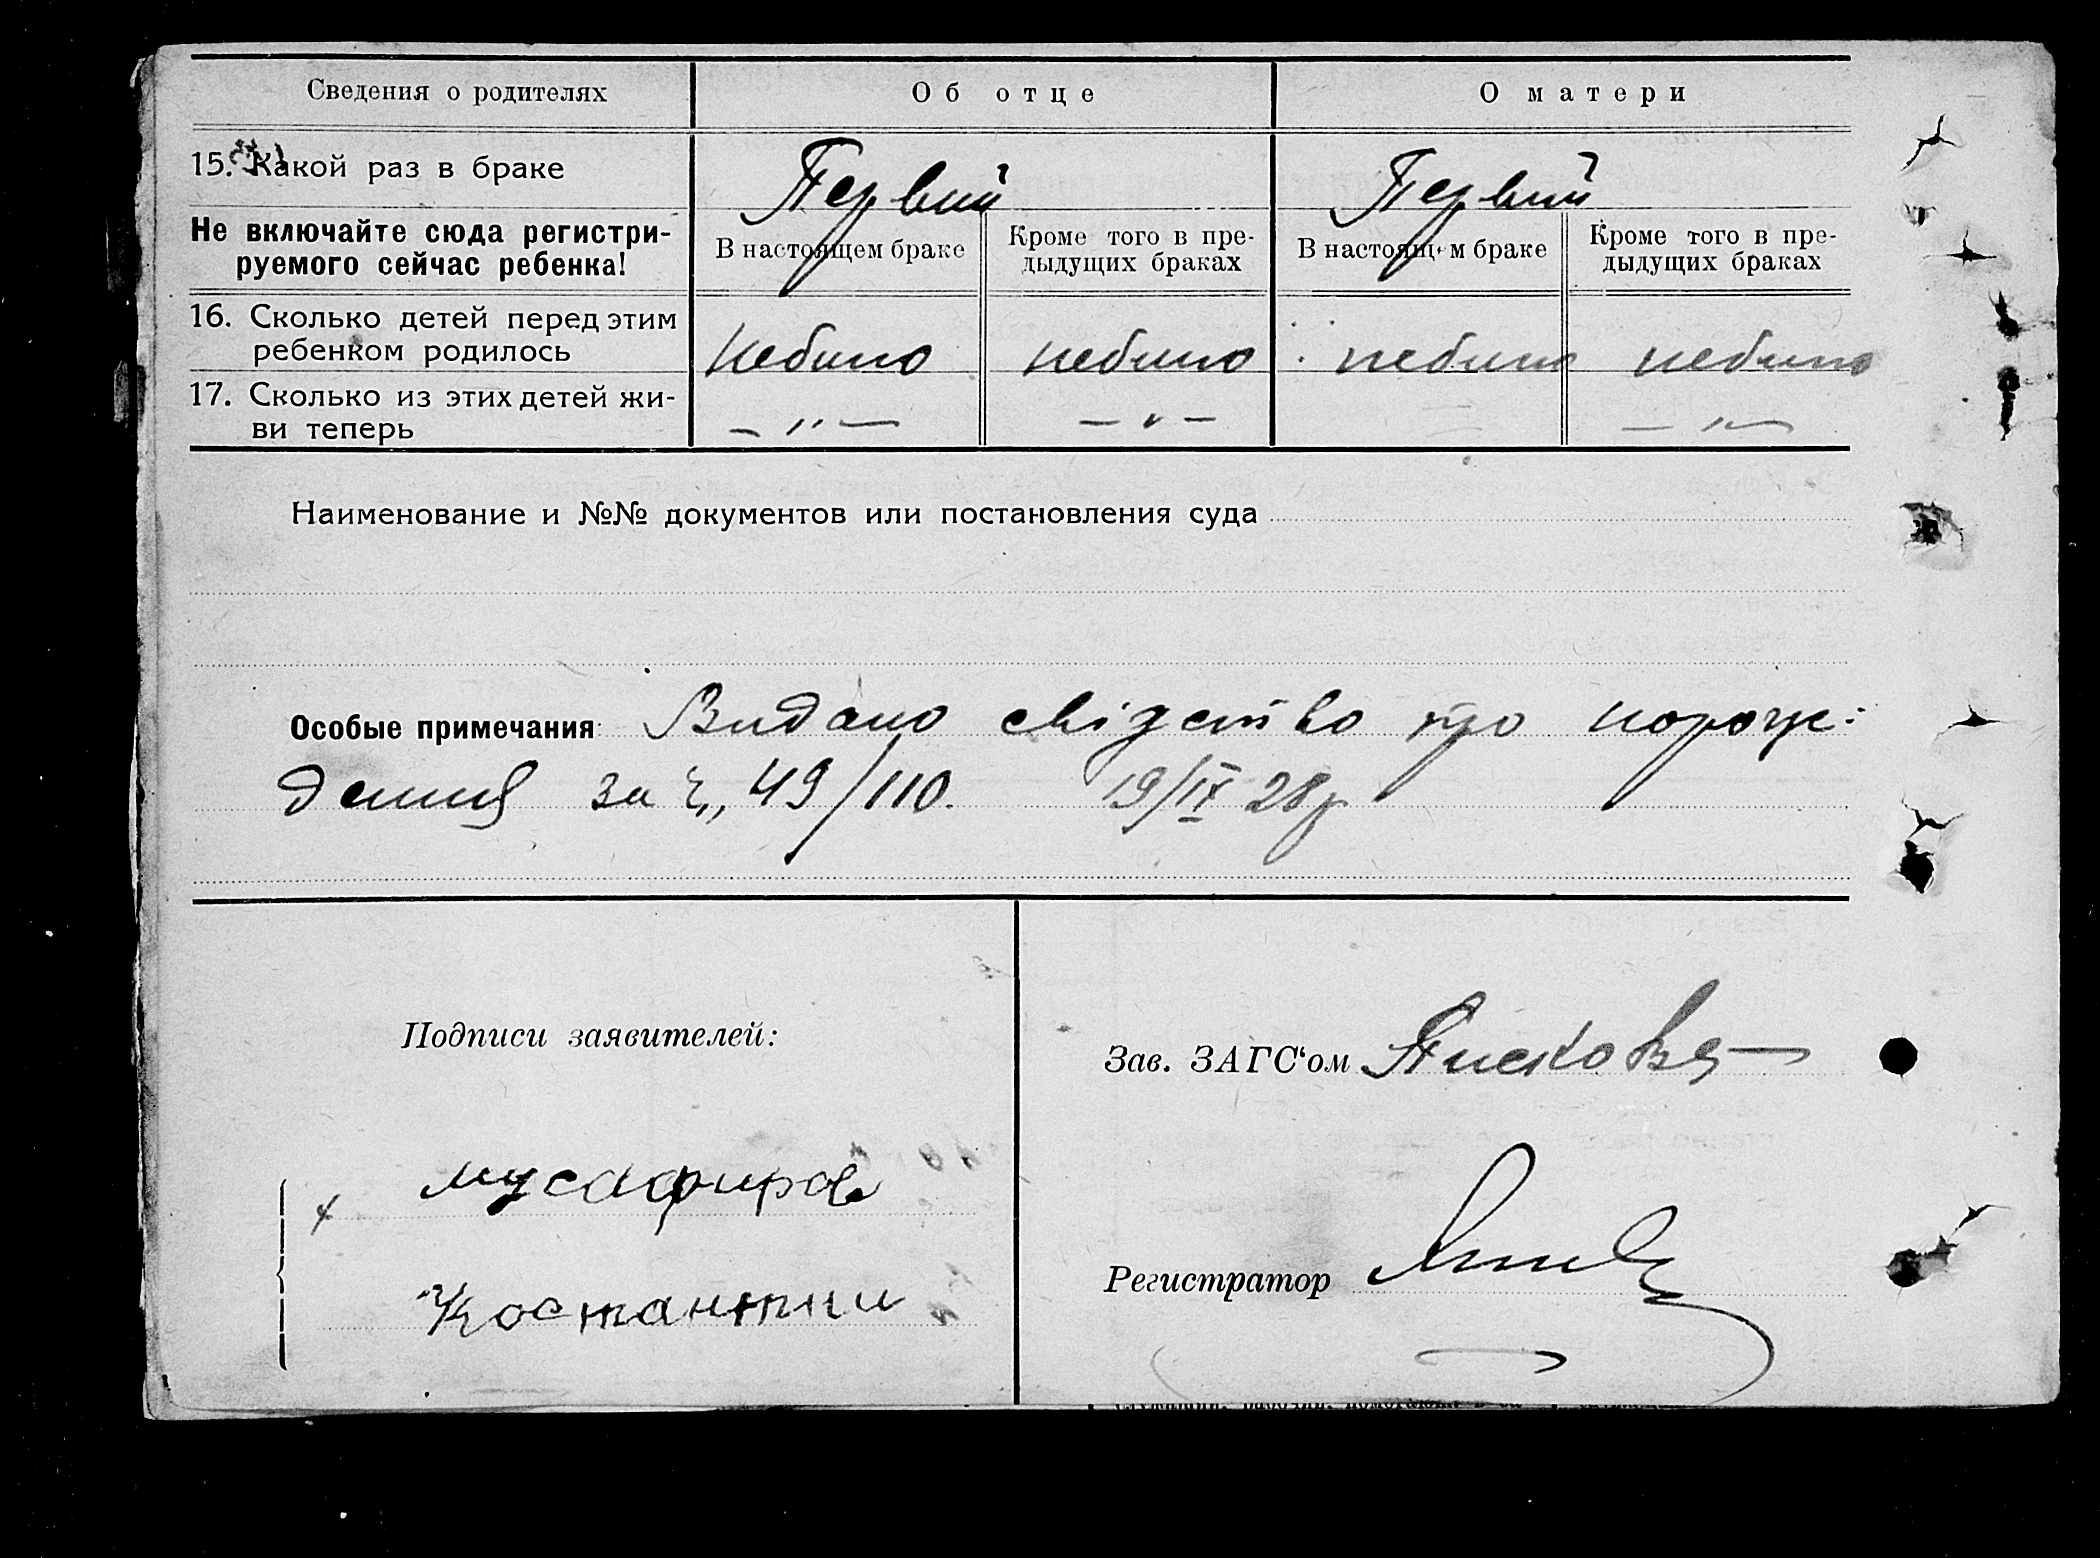 Сведения о родителях Об отце О матери
15. Какой раз в браке Первий Первий
Не включайте сюда регистри-
руемого сейчас ребенка!
В настоящем браке Кроме того в пре-
дыдущих браках В настоящем браке Кроме того в пре-
дыдущих браках
16. Сколько детей перед этим
ребенком родилось небило небило небило небило
17. Сколько из этих детей жи-
ви теперь — " — — " — — " —
Наименование и №№ документов или постановления суда
Особые примечания: Видано свідетство про нарож-
дення за ч., 49/110. 19/IX 28р
Подписи заявителей:
мусафиров
Костантин
Зав. ЗАГС'ом Пискова
Регистратор